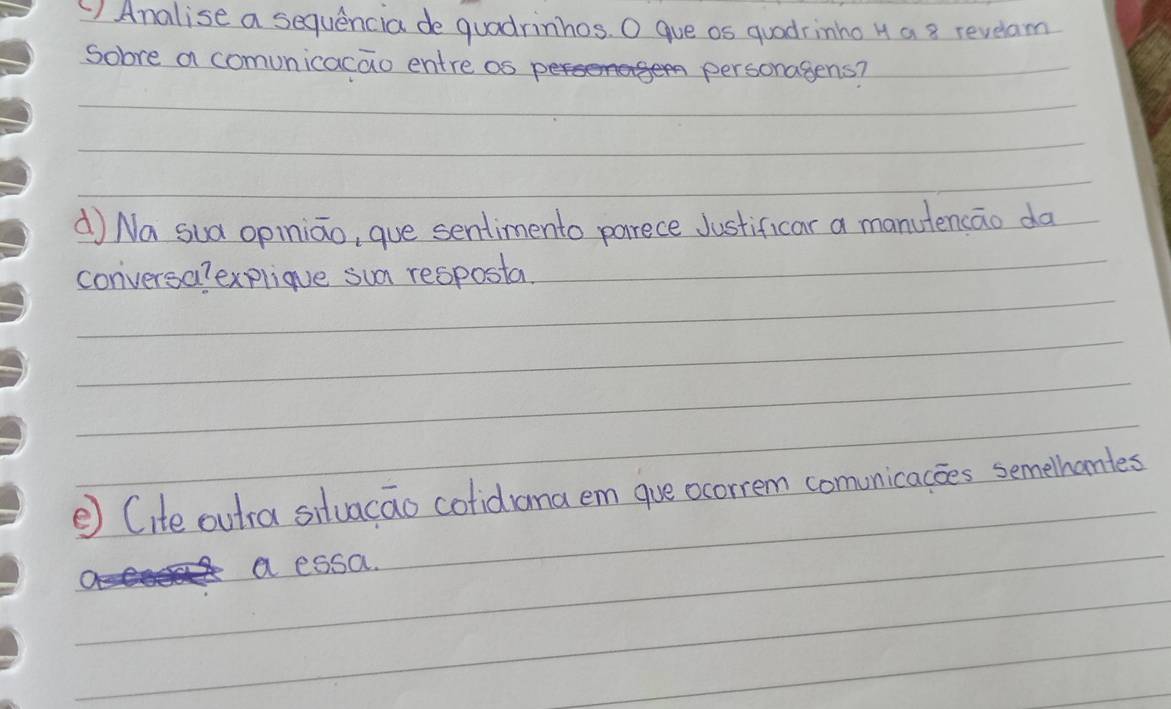 c) Analise a sequência de quadrinhos. O que os quadrinho 4 a 8 revelam
sobre a comunicação entre os personagem personagens?
d) Na sua opinião, que sentimento parece Justificar a manutenção da
conversa? explique sua resposta.
e) Cite outra situação cotidiana em que ocorrem comunicações semelhantes
a essa.